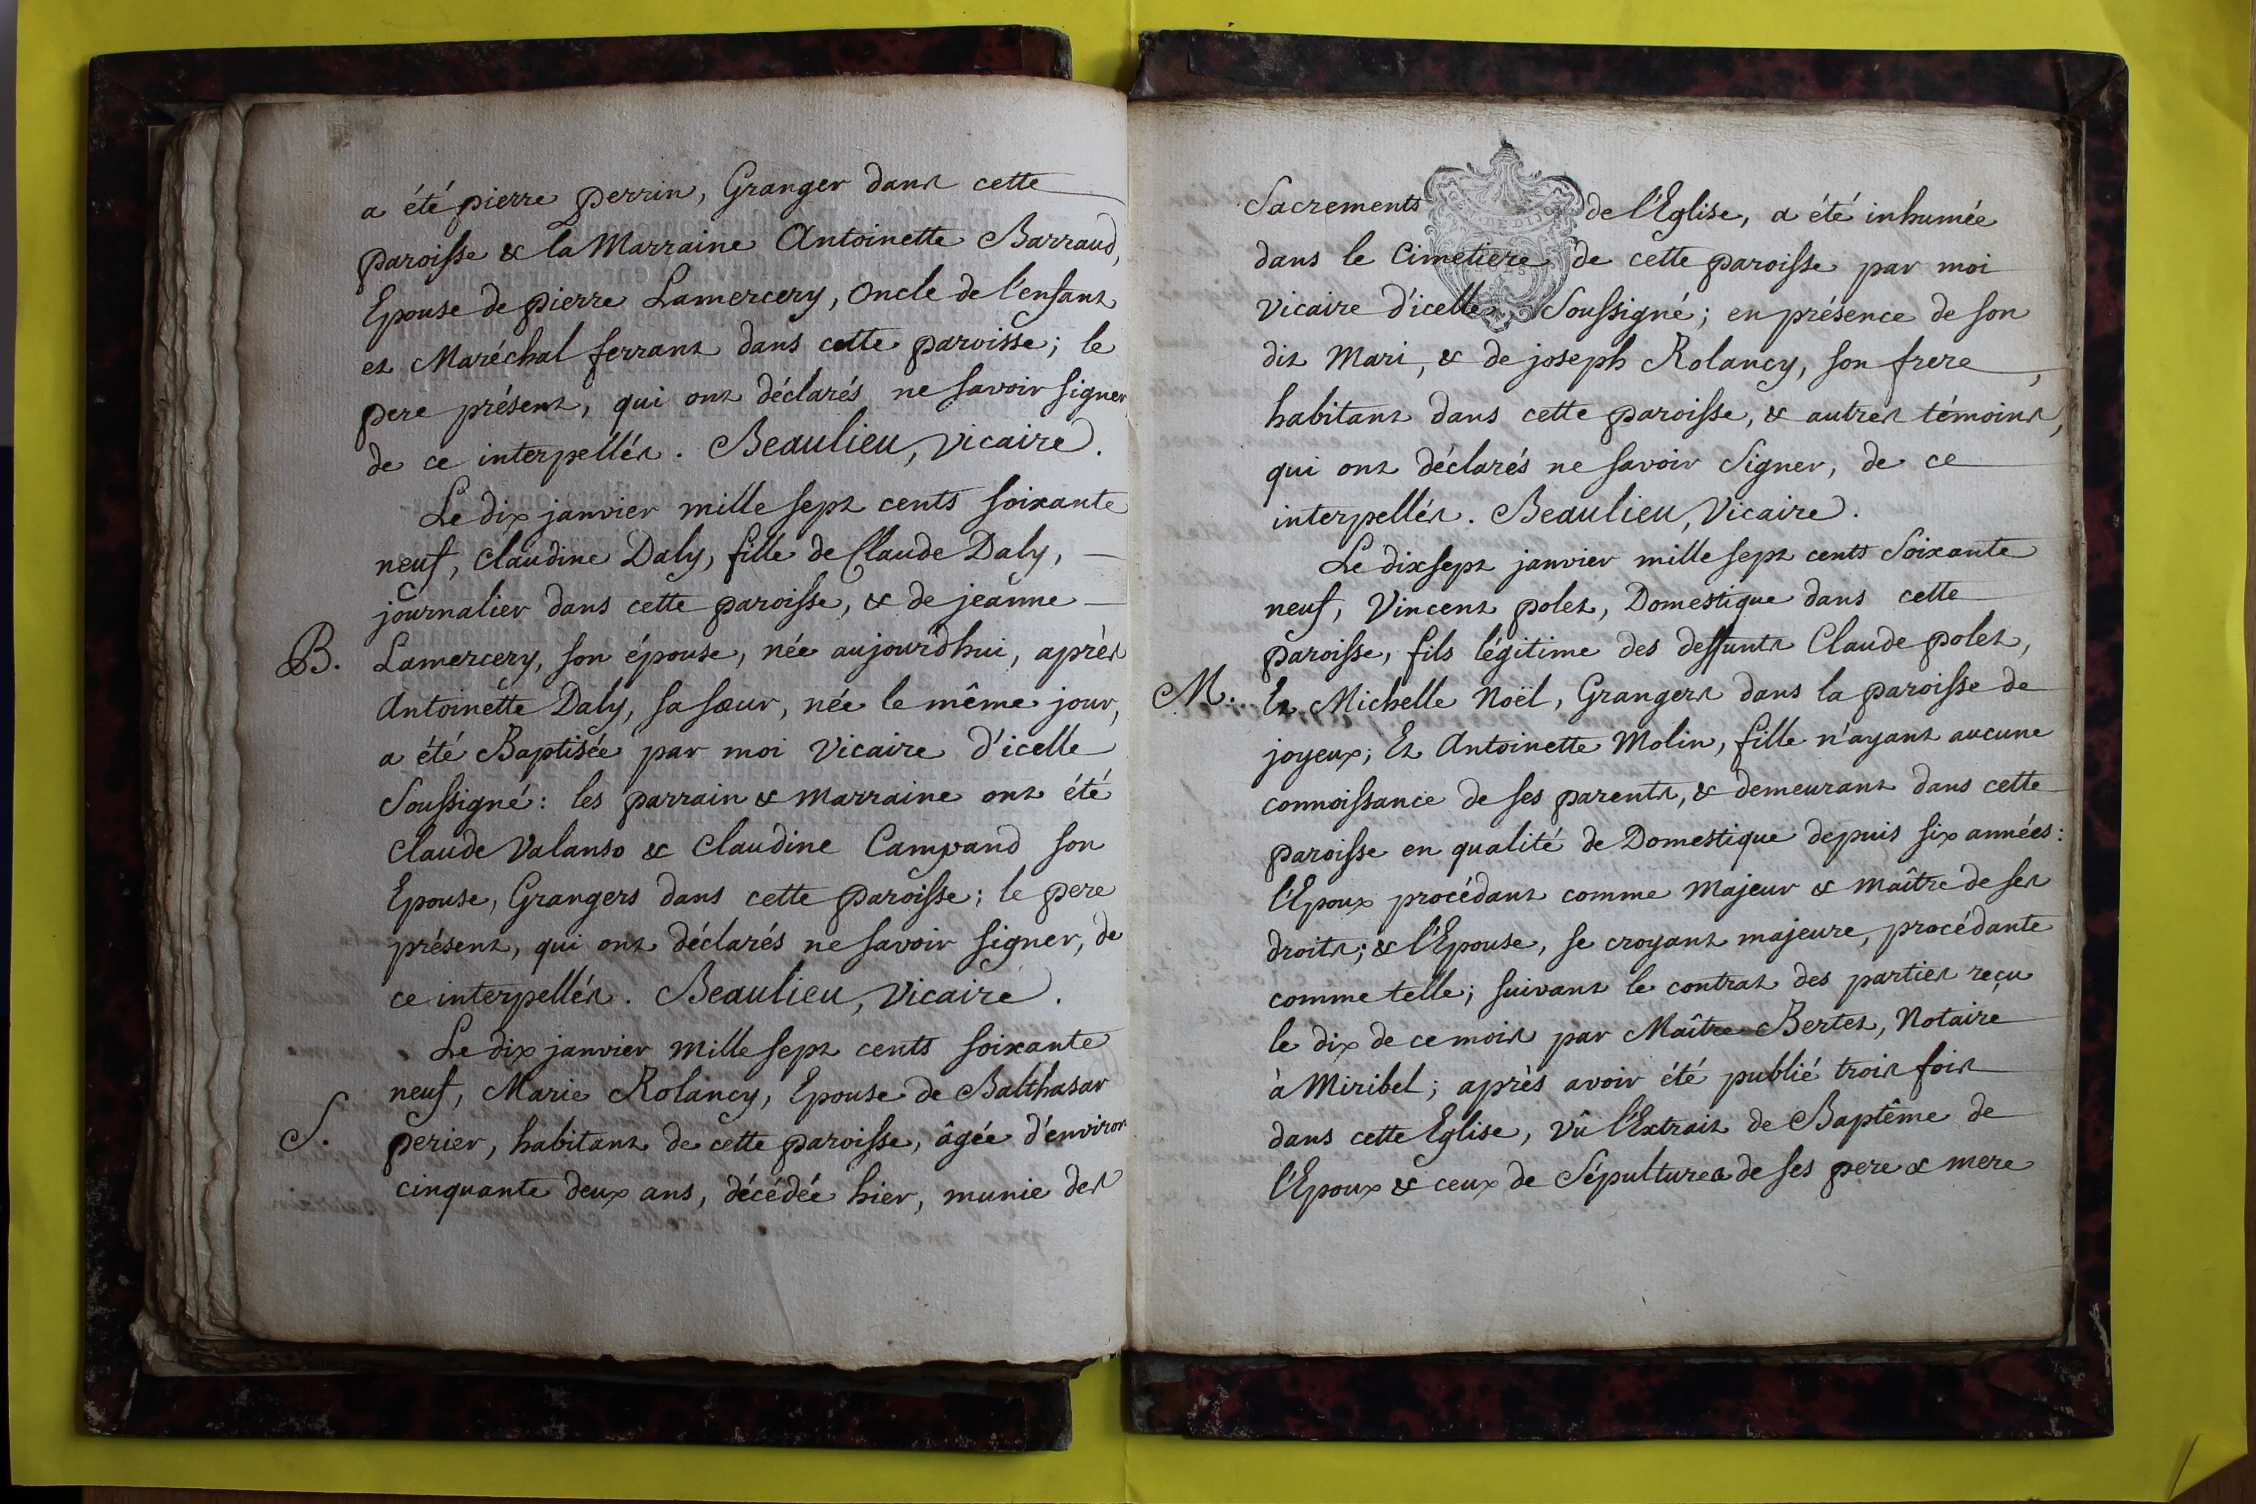 a été pierre perrin, Granger dans cette
paroisse & la Marraine Antoinette Barraud,
Epouse de pierre Lamercery, Oncle de l'enfant
et Maréchal ferrant dans cette paroisse; le
pere présent, qui ont déclarés ne savoir signer
de ce interpellés. Beaulieu, Vicaire.
Le dix janvier mille sept cents soixante
neuf, Claudine Daly, fille de Claude Daly,
journalier dans cette paroisse, & de jeanne
B. Lamercery, son épouse, née aujourd'hui, après
Antoinette Daly, sa sœur, née le même jour,
a été Baptisée par moi Vicaire d'icelle
Soussigné: les parrain & marraine ont été
Claude Valanso & Claudine Campand son
Epouse, Grangers dans cette paroisse; le pere
présent, qui ont déclarés ne savoir signer, de
ce interpellés. Beaulieu, Vicaire.
Le dix janvier mille sept cents soixante
neuf, Marie Rolancy, Epouse de Balthasar
S. perier, habitant de cette paroisse, âgée d'environ
cinquante deux ans, décédée hier, munie des
Sacrements de l'Eglise, a été inhumée
dans le Cimetiere de cette paroisse par moi
Vicaire d'icelle Soussigné; en présence de son
dit Mari, & de joseph Rolancy, son frere,
habitant dans cette paroisse, & autres témoins,
qui ont déclarés ne savoir Signer, de ce
interpellés. Beaulieu, Vicaire.
Le dixsept janvier mille sept cents Soixante
neuf, Vincent polet, Domestique dans cette
paroisse, fils légitime des deffunts Claude polet,
M. Et Michelle Noël, Grangers dans la paroisse de
joyeux; Et Antoinette Molin, fille n'ayant aucune
connoissance de ses parents, & demeurant dans cette
paroisse en qualité de Domestique depuis six années:
l'Epoux procédant comme Majeur & maître de ses
droits; & l'Epouse, se croyant majeure, procédante
comme telle; suivant le contrat des parties reçu
le dix de ce mois par Maître Bertet, Notaire
à Miribel; après avoir été publié trois fois
dans cette Eglise, Vû l'Extrait de Baptême de
l'Epoux & ceux de Sépultures de ses pere & mere